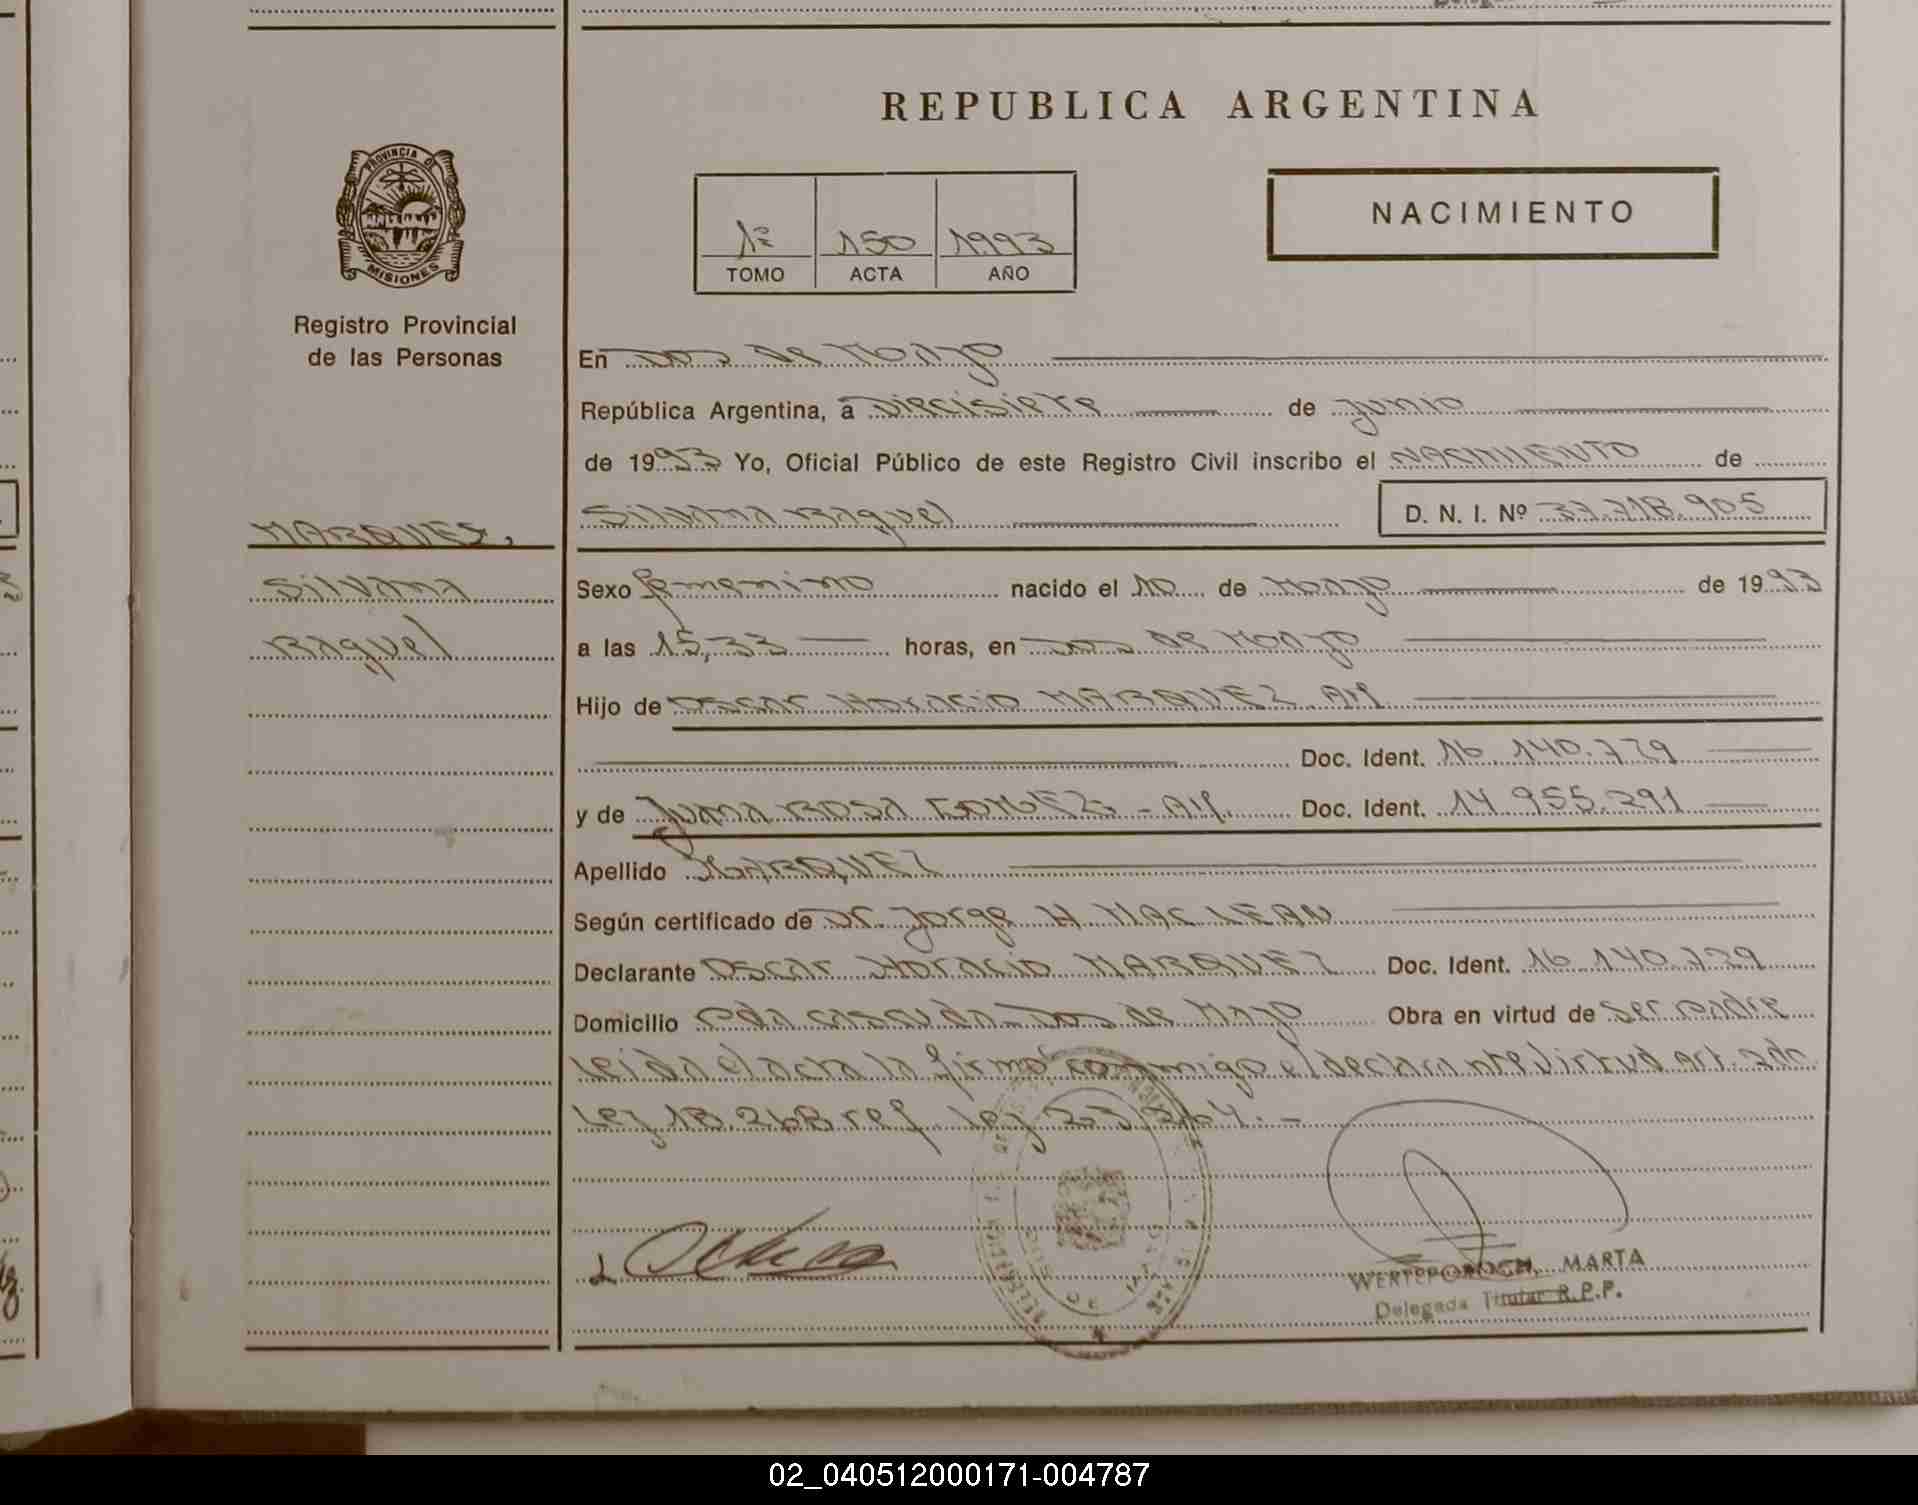 REPUBLICA ARGENTINA
PROVINCIA DE
MISIONES
Registro Provincial
de las Personas
1º 150 1993
TOMO ACTA AÑO
NACIMIENTO
En Dos de Mayo
República Argentina, a Diecisiete de Junio
de 1993 Yo, Oficial Público de este Registro Civil inscribo el NACIMIENTO de
Silvana Raquel D. N. I. Nº 37.718.905
MARQUES,
Silvana
Raquel
Sexo femenino nacido el 10 de Mayo de 1993
a las 15,33 horas, en Dos de Mayo
Hijo de Oscar Horacio MARQUEZ AM
Doc. Ident. 16.140.779
y de Juana ROSA GOMEZ - AM. Doc. Ident. 14.955.291
Apellido MARQUEZ
Según certificado de Dr. Jorge H MAC LEAN
Declarante Oscar Horacio MARQUEZ Doc. Ident. 16.140.779
Domicilio Dos de Mayo Obra en virtud de ser padre
leida el acta la firma conmigo el declarante virtud art. 2do.
ley 18.268 ref ley 23.264.-
MARTA
Delegada Titular R.P.P.
02_040512000171-004787